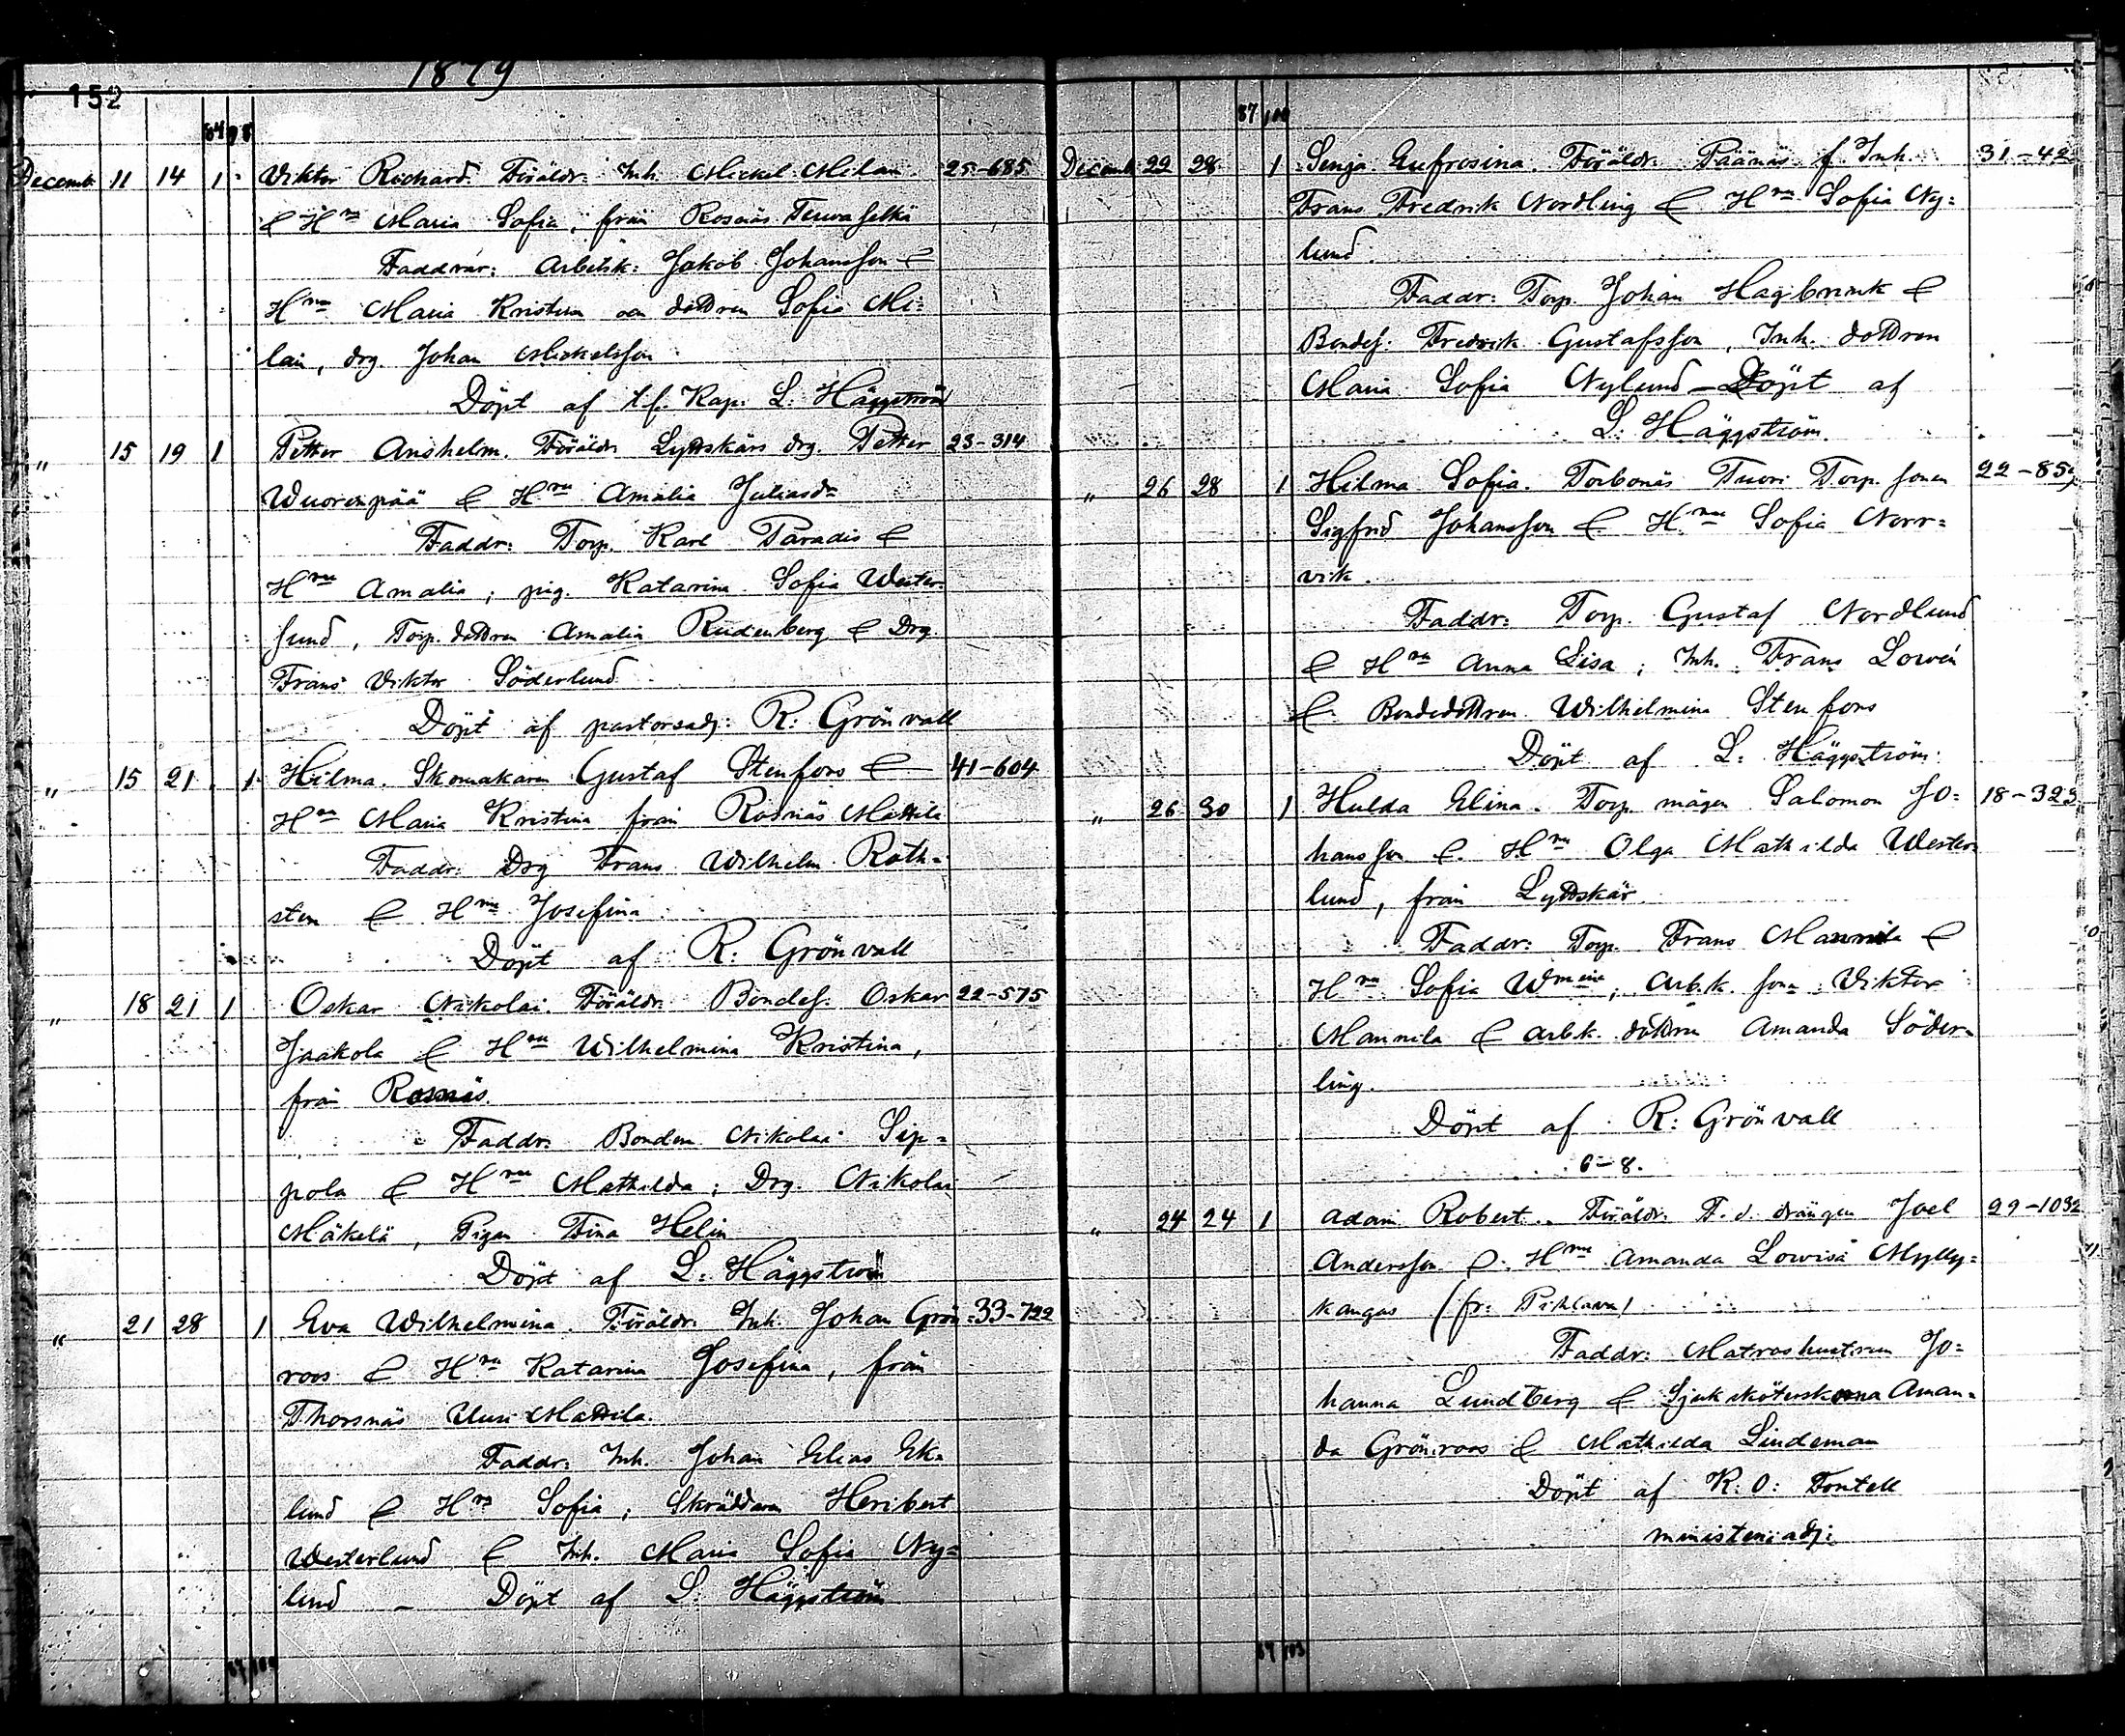 152
1879
84 98
Decemb. 11 14 1 Viktor Richard. Föräldr. Inh. Mickel Milan 25-685
& Hru Maria Sofia, från Rosnäs Terva selkä
Faddrar: Arbetsk: Jakob Johansson &
Hru Maria Kristina och dottren Sofia Mi=
lan, drg. Johan Mickelsson
Döpt af t.f. Kap. L. Häggström
" 15 19 1 Petter Anshelm. Föräldr. Lyttskärs drg. Petter 23-314
Wuorenpää & Hru Amalia Juliasdr
Faddr: Torp. Karl Paradis &
Hru Amalia; pig. Katarina Sofia Wester=
lund, Torp. dottren Amalia Rudenberg & Drg
Frans Viktor Söderlund
Döpt af pastorsadj: R. Grönvall
" 15 21 1 Hilma. Skomakaren Gustaf Stenfors & 41-604
Hru Maria Kristina från Rosnäs Mattila
Faddr: Drg Frans Wilhelm Roth=
sten & Hru Josefina
Döpt af R. Grönvall
" 18 21 1 Oskar Nikolai. Föräldr. Bondes. Oskar 22-575
Jaakola & Hru Wilhelmina Kristina,
från Rosnäs.
Faddr: Bonden Nikolai Sip=
pola & Hru Mathilda; Drg. Nikolai
Mäkelä, Pigan Fina Helin
Döpt af L. Häggström
" 21 28 1 Eva Wilhelmina. Föräldr. Inh. Johan Grön= 33-722
roos & Hru Katarina Josefina, från
Thorsnäs Uusi Mattila.
Faddr: Inh. Johan Elias Ek=
lund & Hru Sofia; Skräddaren Heribert
Westerlund & Inh. Maria Sofia Ny=
lund – Döpt af L. Häggström
87 100
Decemb 22 28 1 Senja Eufrosina. Föräldr. Päänäs f. Inh. 31-42
Frans Fredrik Nordling & Hru Sofia Ny=
lund.
Faddr: Torp. Johan Hagbrink &
Bondes: Fredrik Gustafsson, Inh. dottren
Maria Sofia Nylund – Döpt af
L. Häggström.
" 26 28 1 Hilma Sofia. Torbonäs Tuori Torp. sonen 22-85
Sigfrid Johansson & Hru Sofia Norr=
vik.
Faddr: Torp. Gustaf Nordlund
& Hru Anna Lisa; Inh. Frans Lowén
& Bondedottren Wilhelmina Stenfors
Döpt af L. Häggström.
" 26 30 1 Hulda Elina. Torp. mågen Salomon Jo= 18-323
hansson & Hru Olga Mathilda Wester=
lund, från Lyttskär.
Faddr: Torp. Frans Mannila &
Hru Sofia Wmina; Arb.k. son Viktor
Mannila & arb.k. dottren Amanda Söder=
ling.
Döpt af R. Grönvall
6-8.
" 24 24 1 Adam Robert. Föräldr. F.d. drängen Joel 29-1032
Andersson & Hru Amanda Lowisa Mylly=
kangas (fr: Pihlava)
Faddr: Matroshustrun Jo=
hanna Lundberg & Sjuksköterskorna Aman=
da Grönroos & Mathilda Lindeman
Döpt af K. O: Fontell
ministeri adj:
87 103